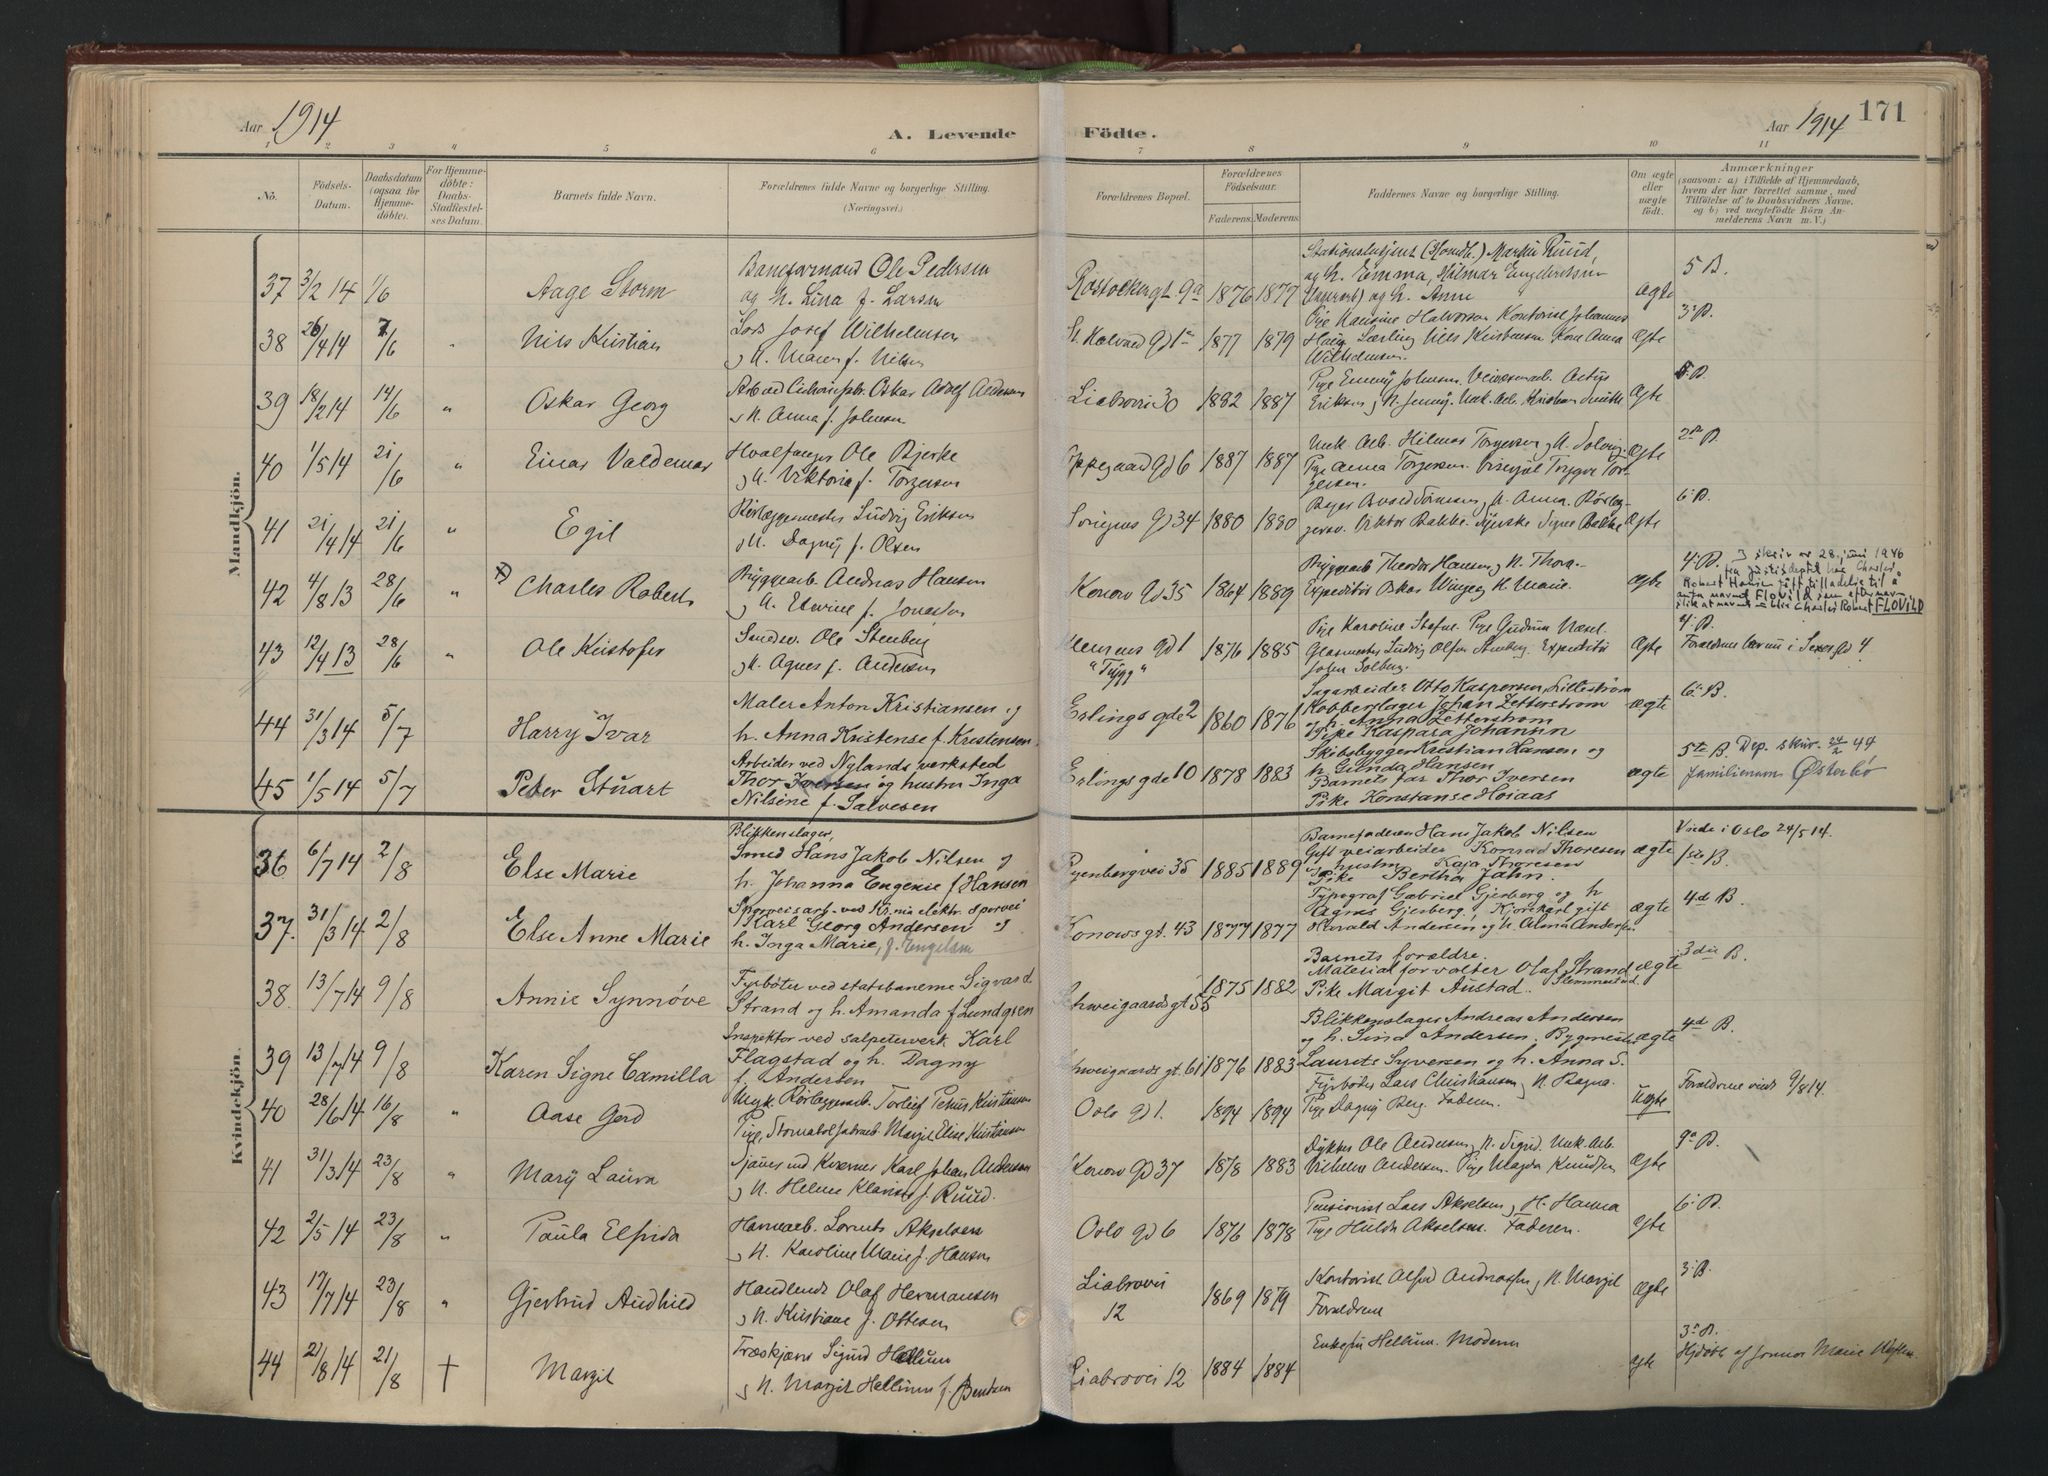 Aar 1914
A. Levende Födte.
Aar 1914
171
1 2 3 4 5 6 7 8 9 10 11
No.
Födsels-Datum.
Daabsdatum (ogsaa for Hjemmedöbte).
For Hjemmedöbte: Daabs-Stadfæstelses Datum.
Barnets fulde Navn.
Forældrenes fulde Navne og borgerlige Stilling. (Næringsvei.)
Forældrenes Bopæl.
Forældrenes Födselsaar.
Faderens. Moderens.
Faddernes Navne og borgerlige Stilling.
Om ægte eller uægte födt.
Anmærkninger
(saasom: a) i Tilfælde af Hjemmedaab, hvem der har forrettet samme, med Tilföielse af to Daabsvidners Navne, og b) ved uægtefödte Börn Anmelderens Navn m. V.)
Mandkjön.
37 3/2 14 1/6 Aage Storm
Baneformand Ole Pedersen
og h. Lina f. Larsen
Rostockergt 9a 1876 1877
Martin Ruud,
og h. Emma, Hilmar Engebretsen
og h. Anne
ægte 5 B.
38 26/4 14 7/6 " Nils Kristian
Lars Josef Wilhelmsen
St. Halvard gd 1a 1877 1879
Pige Halvorsen Kontorist Johannes
Wilhelmsen.
ægte 3. B.
39 18/2 14 14/6 " Oskar Georg
Oskar Adolf Andersen
o H. Anna f. Johnsen
Liabrovei 30 1882 1887
Pige Emmy Johnsen.
Eriksen o H. Jenny.
ægte B.
40 1/5 14 21/6 " Einar Valdemar
Hvalfanger Ole Bjerke
o H. Viktoria f. Torgersen
gd 6 1887 1887
Hilmar Torgersen o H. Solveig
Pige Anna Torgersen. Visergut Trygve Torgersen.
ægte 2. B.
41 21/4 14 21/6 " Egil
Rörlæggermester Ludvig Eriksen
o H. Dagny f. Olsen
Sörengas gd 34 1880 1880
H. Anna.
Viktor Bakke. Syerske Signe Bakke
ægte 6. B.
42 4/8 13 28/6 " x) Charles Robert
Bryggearb. Andreas Hansen
Konow gd 35 1864 1889
Bryggearb Theodor Hansen o H. Thora.
Expeditör Oskar Winge o H. Marie.
ægte 4. B. I skriv av 28. juni 1946
fra justisdeptet har Charles
Robert Hansen fått tilladelse til å
anta navnet FLOVILD som efternavn
slik at navnet blir Charles Robert FLOVILD
43 12/4 13 28/6 " Ole Kristofer
Smedm. Ole Stenberg
o H. Agnes f. Andersen
Klemens gd 1
"Trygg"
1876 1885
Pige Karoline Pige Gudrun
Glasmester Ludvig Olsen Expeditör
Solberg.
ægte 4. B.
44 31/3 14 5/7 Harry Ivar
Maler Anton Kristiansen og
h. Anna Kristense f. Kristensen.
Erlings gde 2 1860 1876
Sagarbeider Otto Kaspersen, Lilleström
Kobberslager Johan Zetterström
og h. Anna Zetterström
Pike Kaspara Johannn
ægte 6. B.
45 1/5 14 5/7 Peter Stuart
Arbeider ved Nylands verksted
Thor Iversen og hustru Inga
Nilsine f. Salvesen
Erlings gde 10 1878 1883
Skibsbygger Kristian Hansen og
h. Gunda Hansen
Barnets far Thor Iversen
Pike Konstanse Hoiaas
ægte 5te B Dep. skriv. 24/2 44
familienavn Østerbø
Kvindekjön.
36. 6/7 14 2/8 Else Marie
Blikkenslager,
Smed Hans Jakob Nilsen og
h. Johanna Eugenie f Hansen
Ryenbergvei 35 1885 1889
Barnefaderen Hans Jakob Nilsen
Gift veiarbeider Konrad Thoresen
og hustru Kaja Thoresen
Pike Bertha Jahn.
ægte Viede i Oslo 24/5 14.
1ste B.
37. 31/3 14 2/8 Else Anne Marie
Sporveisarb. ved Kr.nia elektr. sporvei
Karl Georg Andersen og
h. Inga Marie, f. Engelsen
Konows gt. 43 1877 1877
Typograf Gabriel Gjerberg og h
Agnes Gjerberg, Kjörekarl gift
Harald Andersen og h. Alma Andersen
ægte 4de B.
38. 13/7 14 9/8 Annie Synnöve
Fyrböter ved statsbanerne Sigvard
Strand og h. Amanda f Lundgren
Schweigaards gt 55 1875 1882
Barnets forældre.
Materialforvalter Olaf Strand
Pike Margit Austad. Slemmestad.
ægte 3die B.
39 13/7 14 9/8 Karen Signe Camilla
Inspektor ved salpeterverk. Karl
Flagstad og h. Dagny
f. Andersen
Schweigaards gt. 61 1876 1883
Blikkenslager Andreas Andersen
og h. Sina Andersen. Bygmester
Laurits Syversen og h. Anna S.
ægte 4d B.
40 28/6 14 16/8 " Aase Gerd
Ugk. Rörleggerarb. Torleif Petrus Kristiansen
Oslo gd 1. 1894 1894
Fyrböter Lars Christiansen o H. Ragna.
Pige Dagny Berg. Faderen.
Uægte Forældrene viede 9/8 14.
41 31/3 14 23/8 " Mary Laura
Karl Johan Andersen
o H. Helene f. Ruud.
Konow gd 37 1878 1883
Dykker Ole Andersen o H. Sigrid. Uek. Arb.
Vilhelm Andersen. Pige Magda Knudsen
ægte 9a B.
42 2/5 14 23/8 " Paula Elfrida
Havnearb. Akselsen
o H. Karoline Marie f. Hansen
Oslo gd 6 1876 1878
Pensionist Lars Akselsen o H. Hanna
Pige Hulda Akselsen. Faderen.
ægte 6. B.
43 17/7 14 23/8 " Gjertrud Audhild
Handlende Olaf Hermansen
o H. Kristiane f. Ottesen
Liabrovei 12 1869 1879
Kontorist Alfred Andreassen o H. Margit
Forældrene
ægte 3. B.
44 21/8 14 21/8 † Margit
Træskjærer Sigurd Hellum
o H. Margit Hellum f. Bentzen
Liabrovei 12 1884 1884
Enkefru Hellum. Moderen
ægte 3. B.
Hjdöbt af Jormor Marie